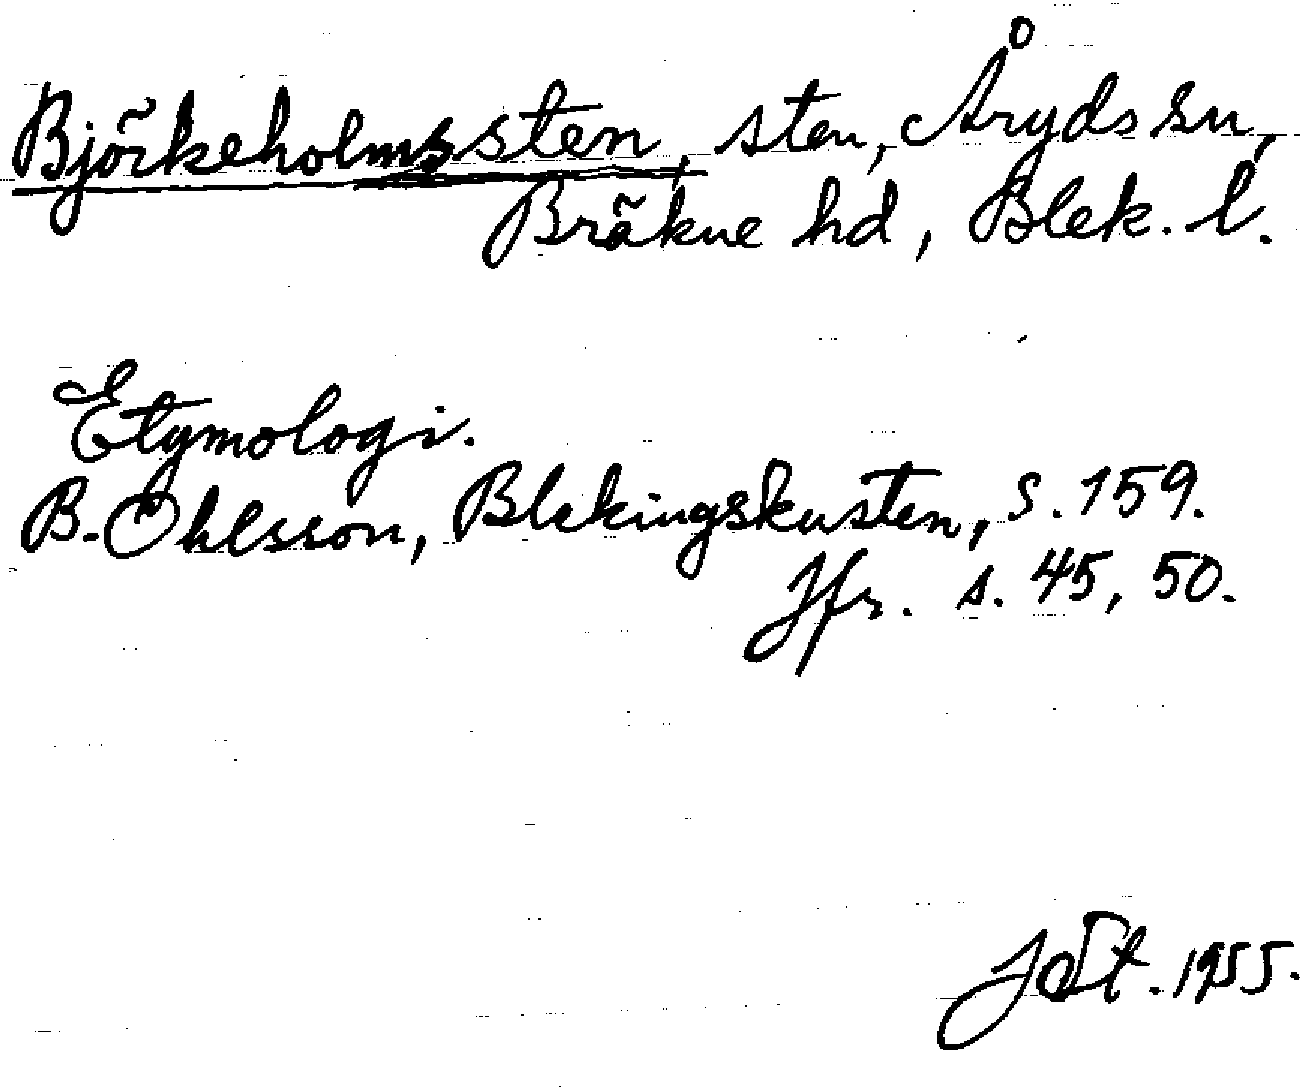 Björkeholmssten, sten, Åryds sn,
Bräkne hd, Blek. l.
Etymologi.
B. Ohlsson, Blekingskusten, s. 159.
Jfr. s. 45, 50.
1955.